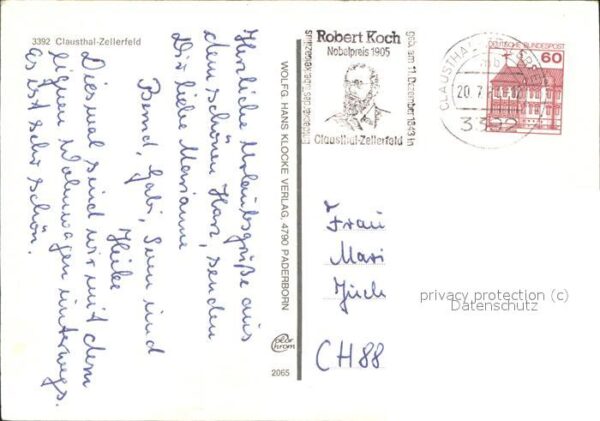 3392 Clausthal-Zellerfeld
Herzliche Urlaubsgrüße aus
dem schönen Harz, senden
Dir liebe Marianne
Bernd, Gabi, und
Heike
Diesmal sind wir mit dem
eignen Wohnwagen unterwegs.
Es ist sehr schön.
WOLFG. HANS KLOCKE VERLAG, 4790 PADERBORN
polar chrom
2065
Robert Koch
Nobelpreis 1905
geb. am 11. Dezember 1843 in
Clausthal-Zellerfeld
CLAUSTHAL
20.7.
3392
DEUTSCHE BUNDESPOST
60
Frau
Mari
CH88
privacy protection (c)
Datenschutz